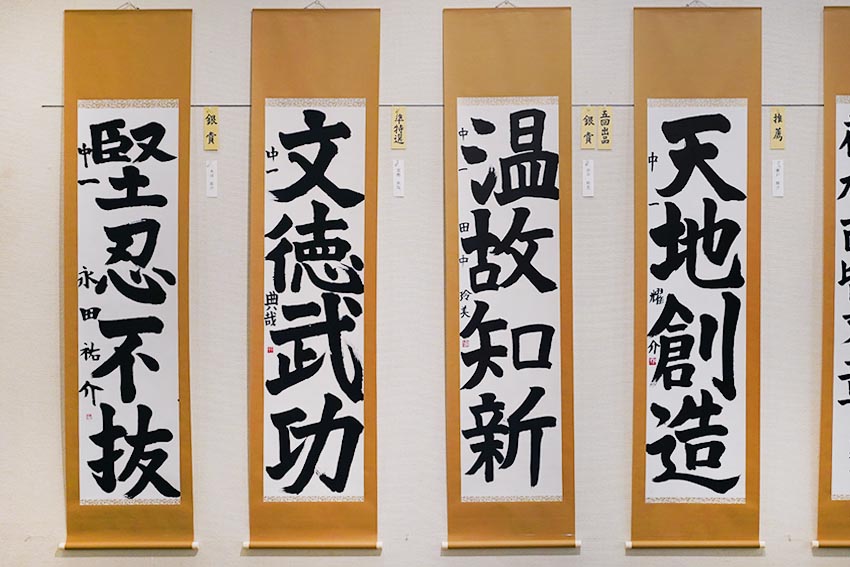 堅忍不抜
中一 永田祐介
銀賞
文徳武功
中一 典哉
準特選
温故知新
中一 田中玲美
五回出品
銀賞
天地創造
中一 耀介
推薦